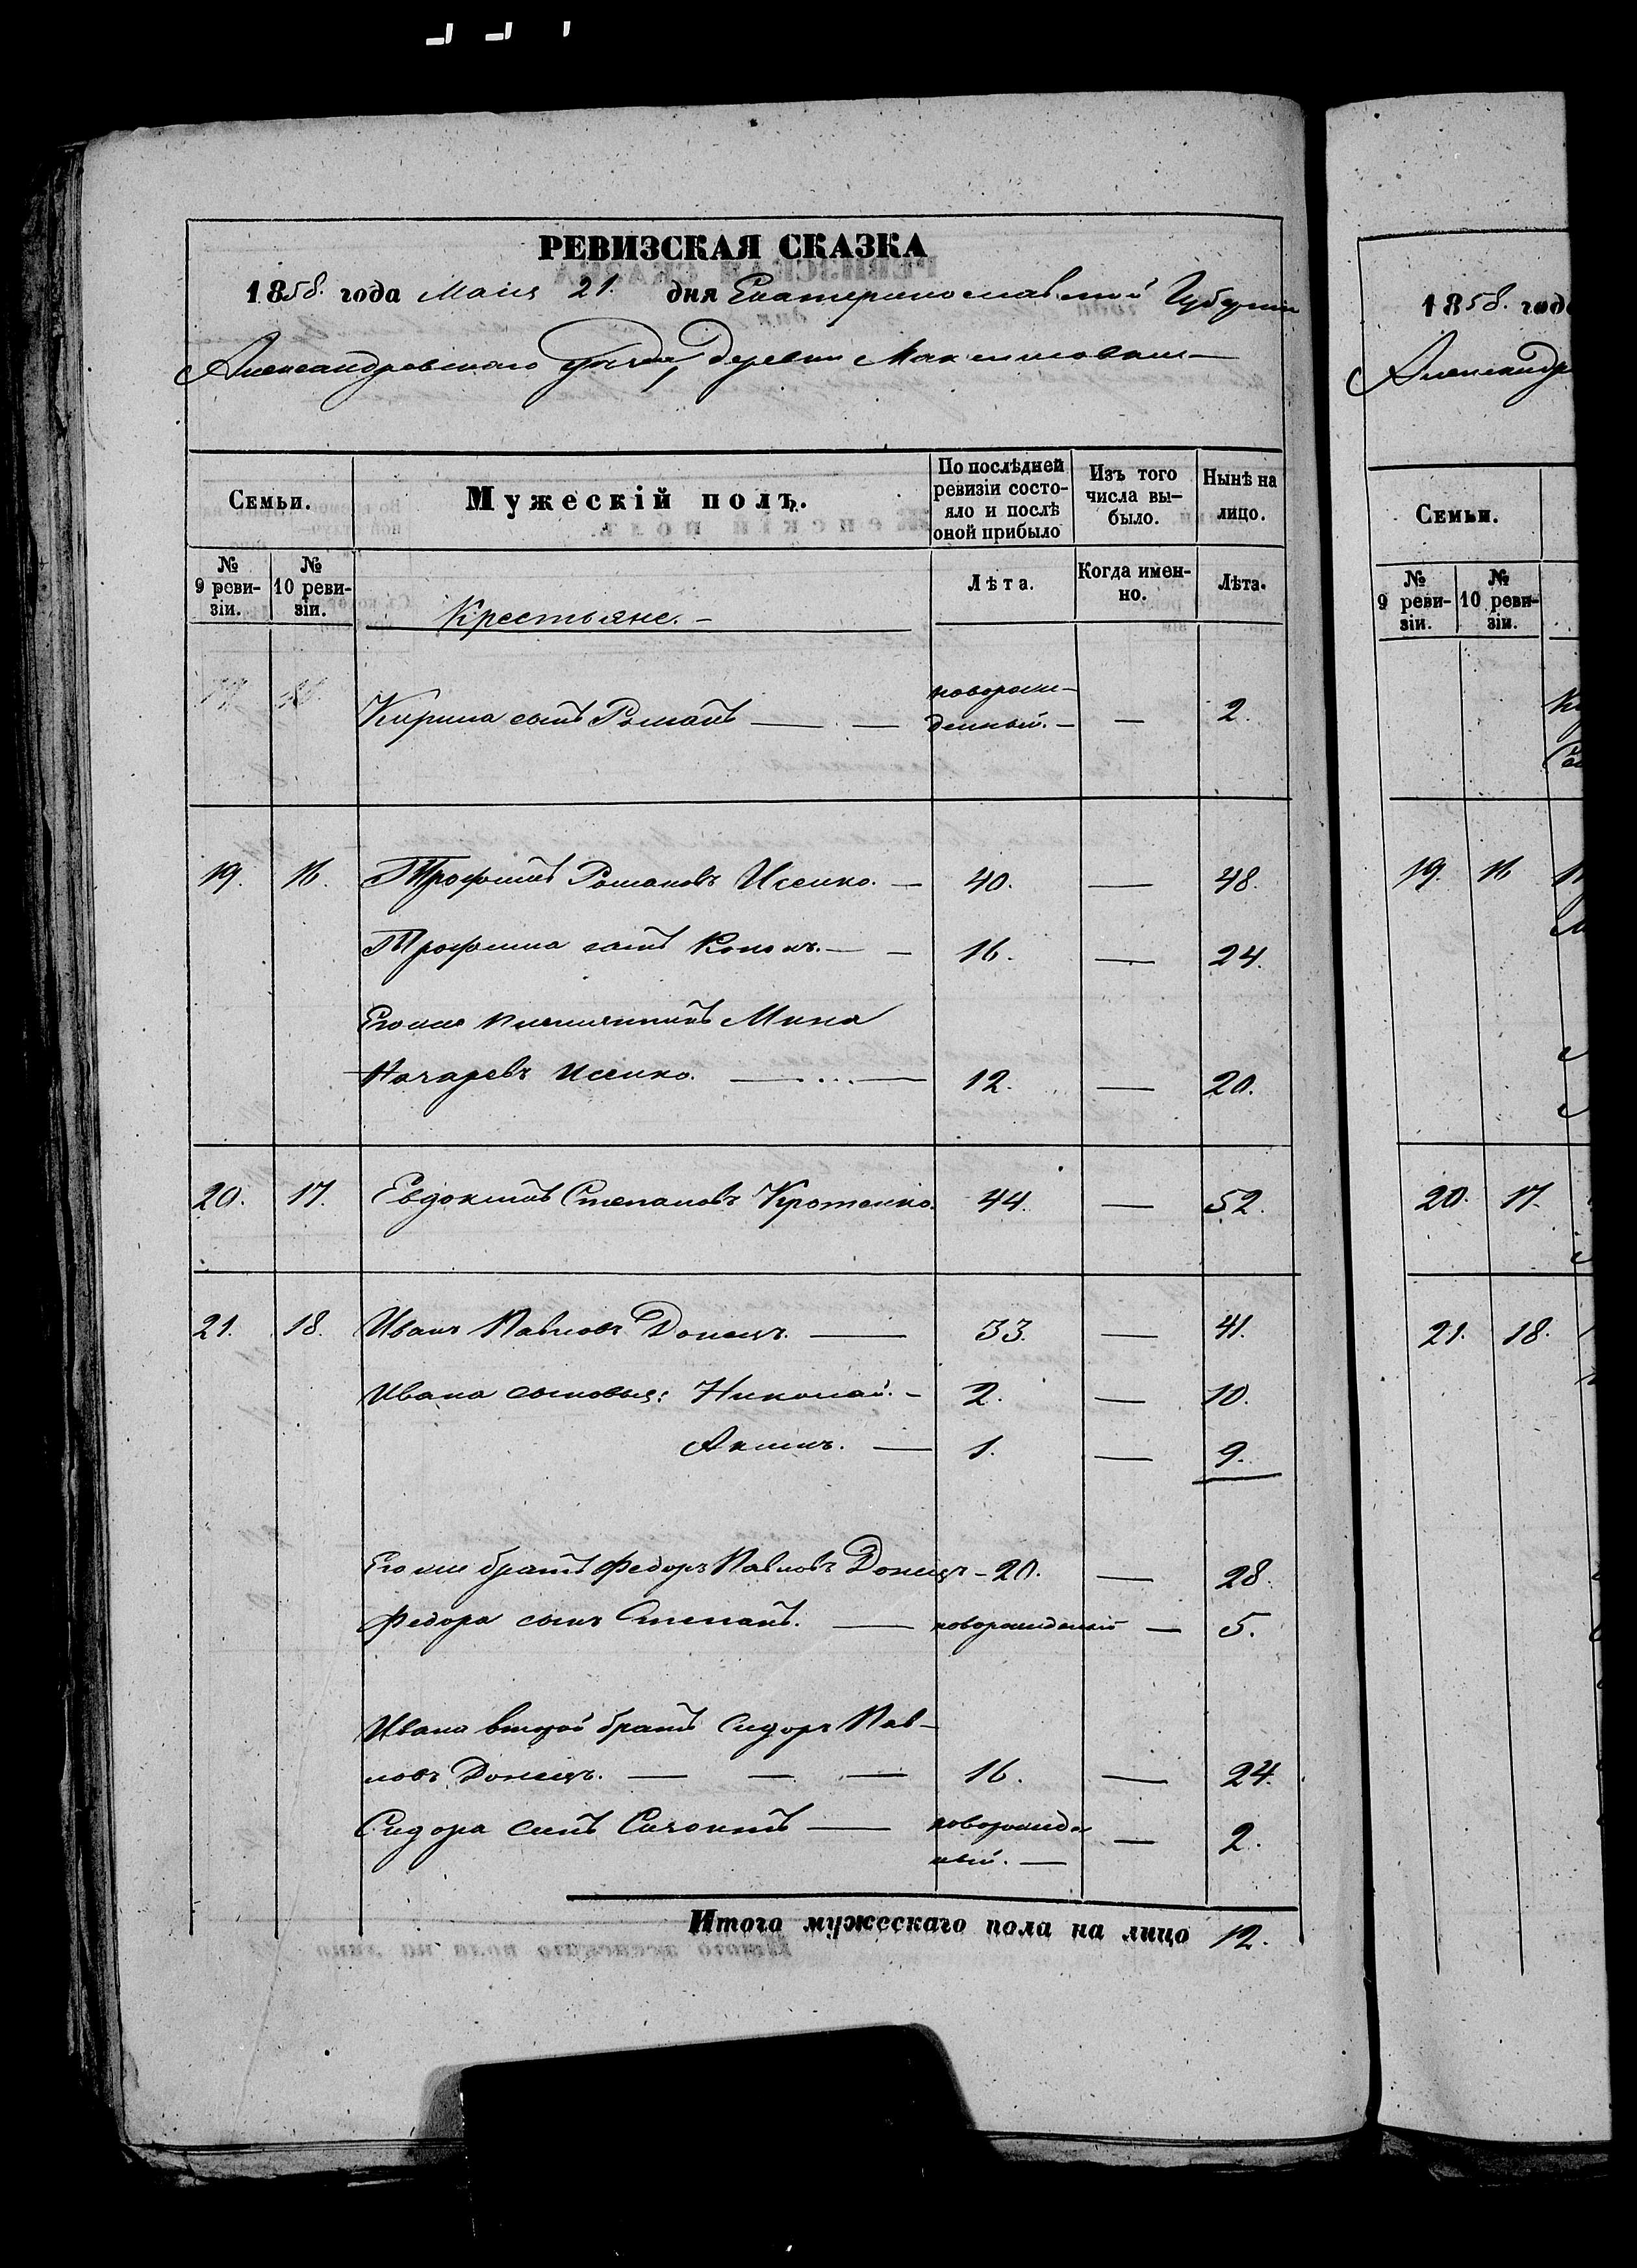 РЕВИЗСКАЯ СКАЗКА
1858. года Маия 21. дня Екатеринославской Губернии
Александровского уезда, Деревни Максимовки —
Семьи.
Мужескій полъ.
По послѣдней ревизіи состояло и послѣ оной прибыло
Изъ того числа выбыло.
Нынѣ на лицо.
№ 9 ревизіи.
№ 10 ревизіи.
Крестьяне. —
Лѣта.
Когда именно.
Лѣта.
Кирила сынъ Романъ — — новорожденный. — — 2.
19. 16. Трофимъ Романовъ Исенко. — 40. — 48.
Трофима сынъ Кононъ. — — 16. — 24.
Его же племянникъ Мина
Исенко. — 12. — 20.
20. 17. Евдокимъ Степановъ Кротенко. 44. — 52.
21. 18. Иванъ Павловъ Донецъ. — 33. — 41.
Ивана сыновья: Николай. — 2. — 10.
Акимъ. — 1. — 9.
Его же братъ Федоръ Павловъ Донецъ — 20. — 28.
Федора сынъ Степанъ. — новорожденый — 5.
Ивана второй братъ Сидоръ Пав-
ловъ Донецъ. — — — 16. — 24.
Сидора сынъ — новорожденый. — — 2.
Итого мужескаго пола на лицо 12.
1858. года
Александр
Семьи.
№ 9 ревизіи.
№ 10 ревизіи.
19. 16
20. 17.
21. 18.